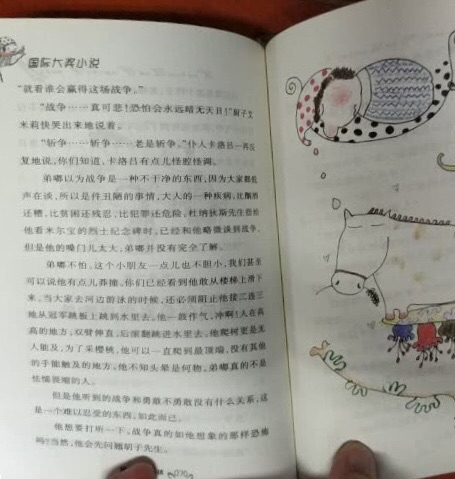 国际大奖小说
“就看谁会赢得这场战争。”
“战争……真可悲！恐怕会永远暗无天日！”厨子艾
米莉快哭出来地说着。
“斩争……斩争……老是斩争。”仆人卡洛吕一再反
复地说，你们知道，卡洛吕有点儿怪腔怪调。
弟嘟以为战争是一种不干净的东西，因为大家都低
声在谈，所以是件丑陋的事情，大人的一种疾病，比酗酒
还糟，比贫困还残忍，比犯罪还危险。杜纳狄斯先生指给
他看米尔宝的烈士纪念碑时，已经和他略微谈到战争，
但是他的嗓门儿太大，弟嘟并没有完全了解。
弟嘟不怕，这个小朋友一点儿也不胆小，我们甚至
可以说他有点儿莽撞。你们已经看到他敢从楼梯上滑下
来。当大家去河边游泳的时候，还必须阻止他接二连三
地从冠军跳板上跳到水里去。他一鼓作气，冲啊！人在高
高的地方，双臂伸直，后滚翻跳进水里去。他爬树更是无
人能及，为了采樱桃，他可以一直爬到最顶端，没有其他
的手能触及的地方。他不知头晕是何物。弟嘟真的不是
怯懦畏缩的人。
但是他所听到的战争和勇敢不勇敢没有什么关系，这
是一个难以忍受的东西，如此而已。
他想要打听一下，战争真的如他想象的那样恐怖
吗？当然，他会先问翘胡子先生。